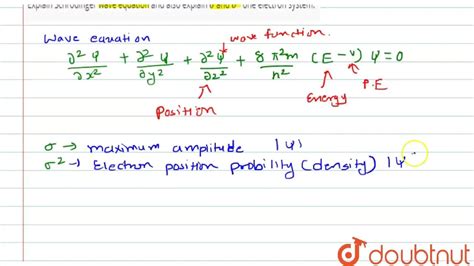 Explain Schrodinger wave equation and also explain σ and σ² one electron system.
Wave equation
wave function.
∂²ψ/∂x² + ∂²ψ/∂y² + ∂²ψ/∂z² + 8π²m/h² (E-v) ψ=0
Position
Energy
P.E
σ → maximum amplitude |ψ|
σ² → Electron position probility (density) |ψ
doubtnut